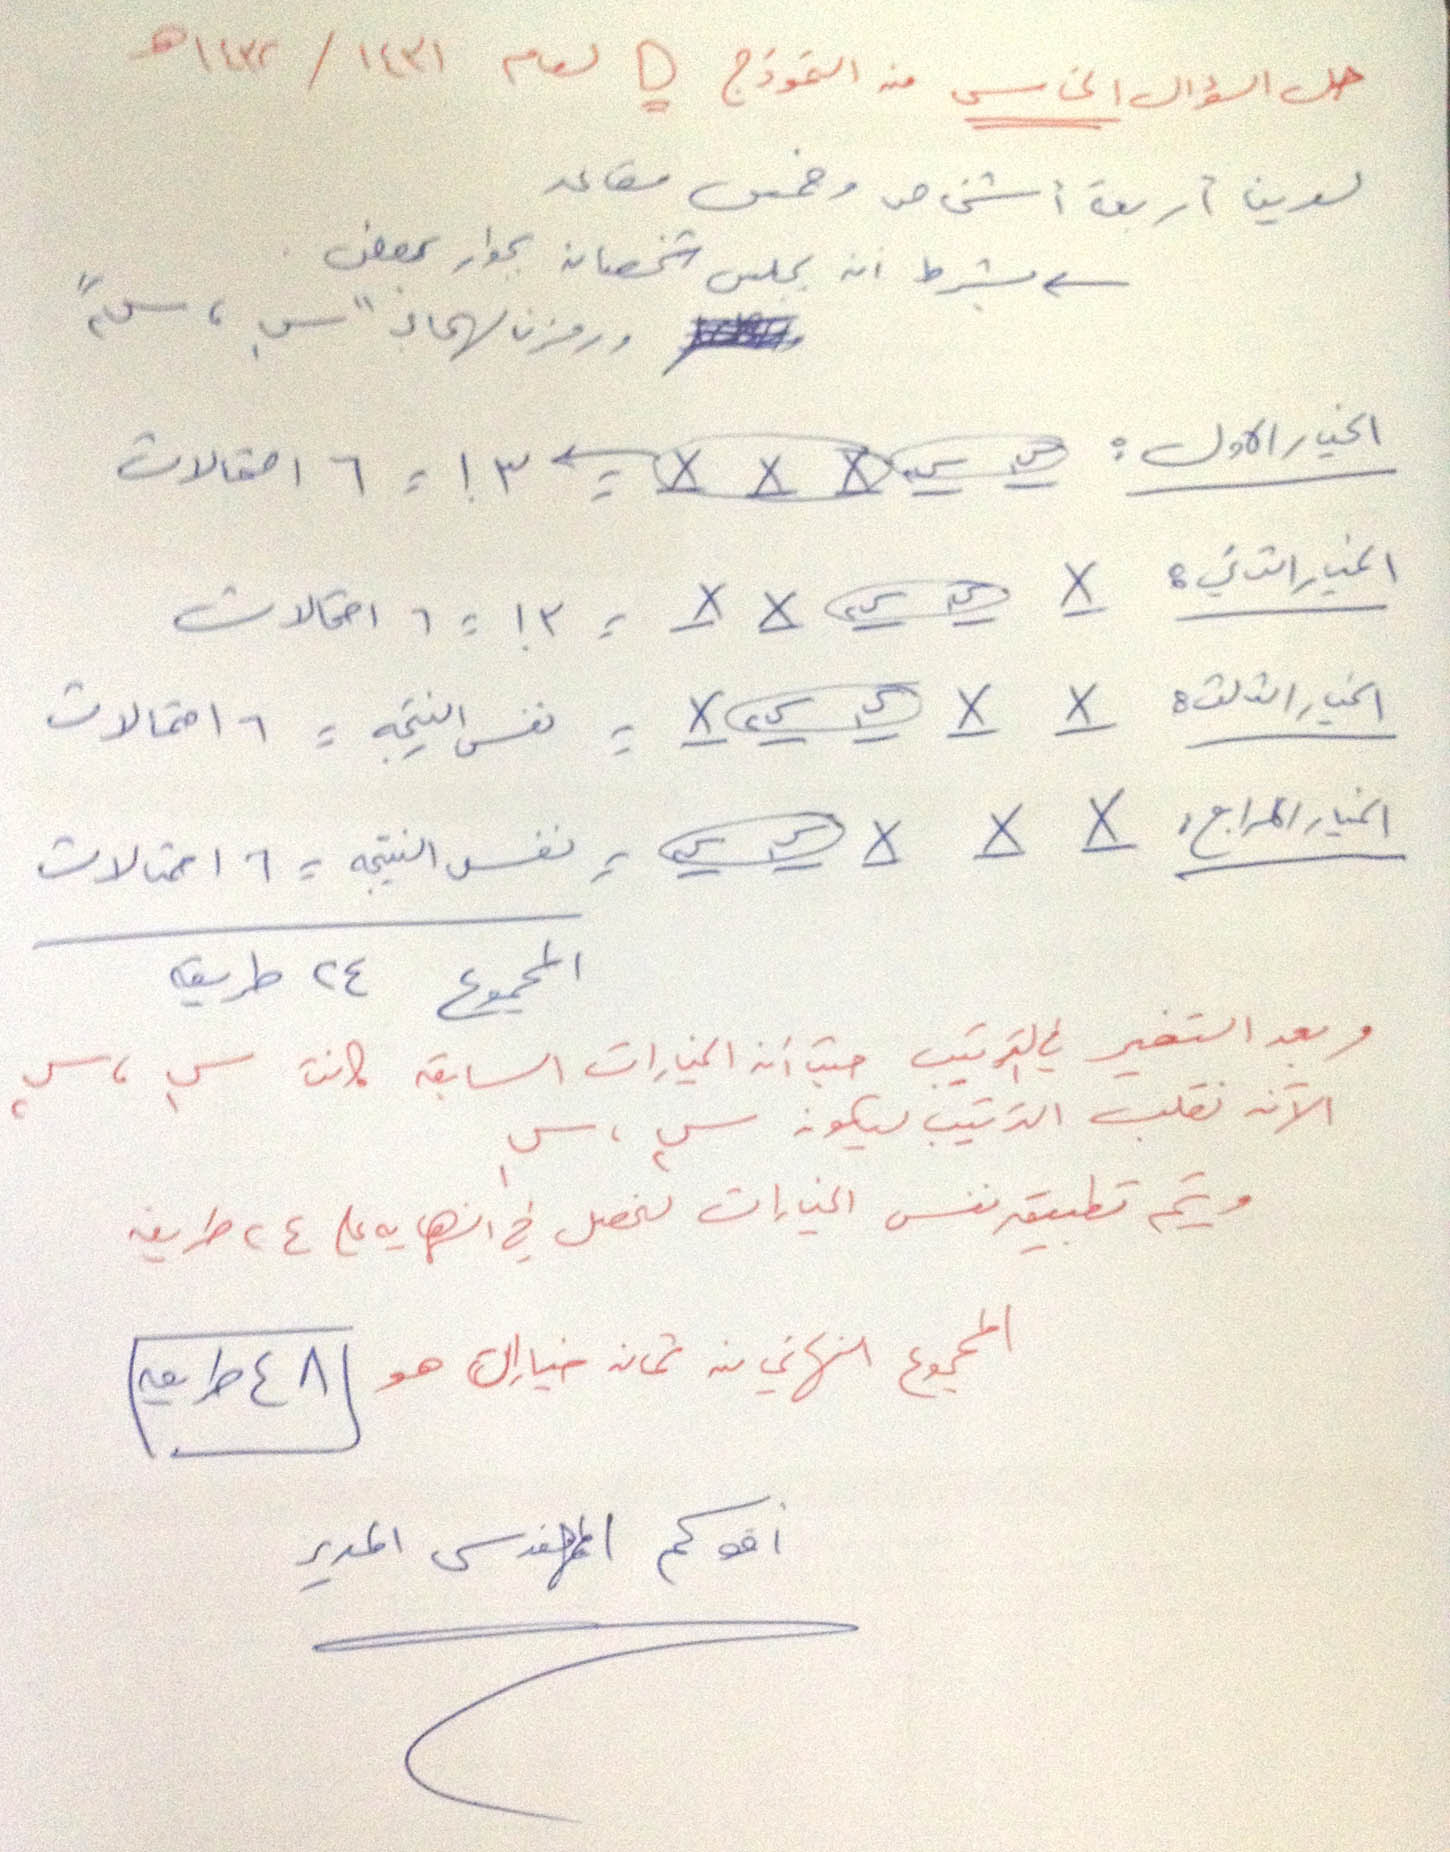 حل السؤال الخامس من النموذج D لعام ١٤٣١ / ١٤٣٢هـ
لدينا أربعة أشخاص وخمس مقاعد
← بشرط ان يجلس شخصان بجوار بعض .
ورمزنا لهما بـ "س١ ، س٢"
الخيار الاول : س١ س٢ X X X = ← ٣! = ٦ احتمالات
الخيار الثاني : X س١ س٢ X X = ٣! = ٦ احتمالات
الخيار الثالث : X X س١ س٢ X = نفس النتيجه = ٦ احتمالات
الخيار الرابع : X X X س١ س٢ = نفس النتيجه = ٦ احتمالات
المجموع ٢٤ طريقه
وبعد التغير في الترتيب حيث أن الخيارات السابقه كانت س١ ، س٢
الآن نقلب الترتيب ليكون س٢ ، س١
ويتم تطبيق نفس الخيارات لنحصل في النهايه على ٢٤ طريقه
المجموع النهائي من ثمان خيارات هو ٤٨ طريقه
أخوكم المهندس المدير